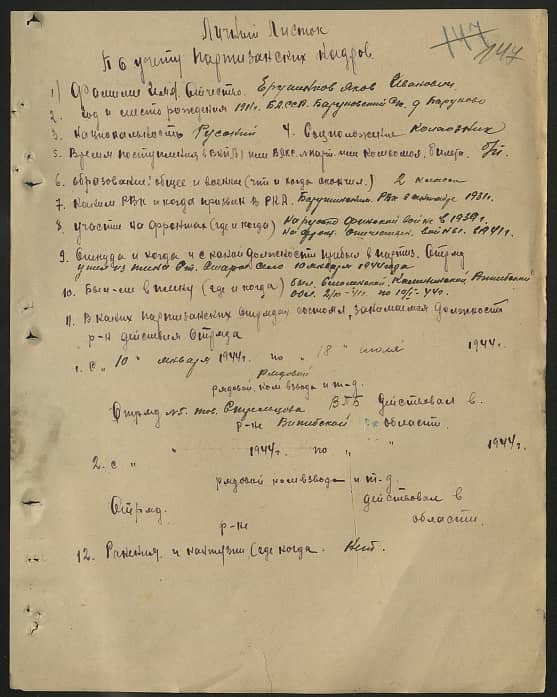 Личный Листок
147
147
По учету партизанских кадров
1) Фамилия Имя Отчество. Яков Иванович
2. Год и место рождения 1911г. БССР. р-н. д
3. Национальность Русский 4. Соцположение колхозник
5. Время поступления в ВКП(б) или ВЛКСМ парт. или комсомол. билета. б/п.
6. образование: общее и военное (что и когда окончил.) 2 класса
7. Каким РВК и когда призван в РКА. РВК 1931г.
8. участие на фронтах (где и когда) На русско финской войне в 1939г.
На фрон. отечествен. войны. 1941г.
9. Откуда и когда и с какой должности прибыл в партиз. Отряд
ушел из плена ст. село 10 января 1944 года
10. Был-ли в плену (где и когда) был. Смоленской, Калининской, Витебской
обл. по 44г.
11. В каких партизанских отрядах состоял, занимаемая должность
р-н действия Отряда
1. с „ 10 „ января 1944г. по „ 18 „ июля 1944г.
рядовой
рядовой, ком взвода и т-д.
Отряд №5. тов. Стрелцова ВПБ действовал в.
р-не Витебской области.
„ „ 1944г. по „ „ 1944г.
2. с „
рядовой ком взвода и т-д.
Отряд. действовал в
р-не области.
12. Ранения и контузии (где когда. Нет.